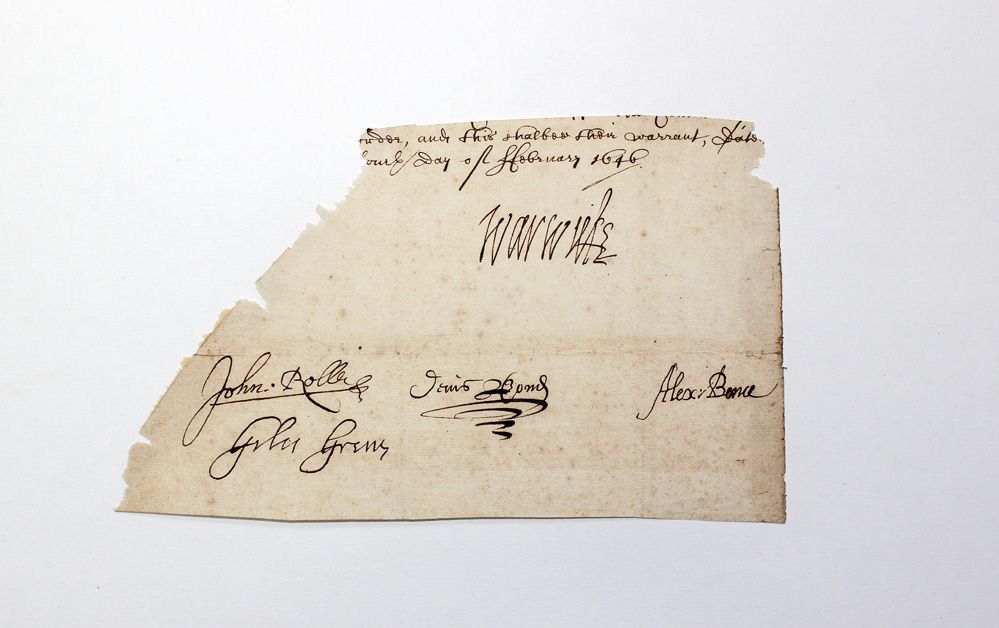 order, and this shalbee their warrant, Date
day of ffebruary 1646
Warwicke
John. Rolle
Denis Bond
Alex: Bence
Giles Green